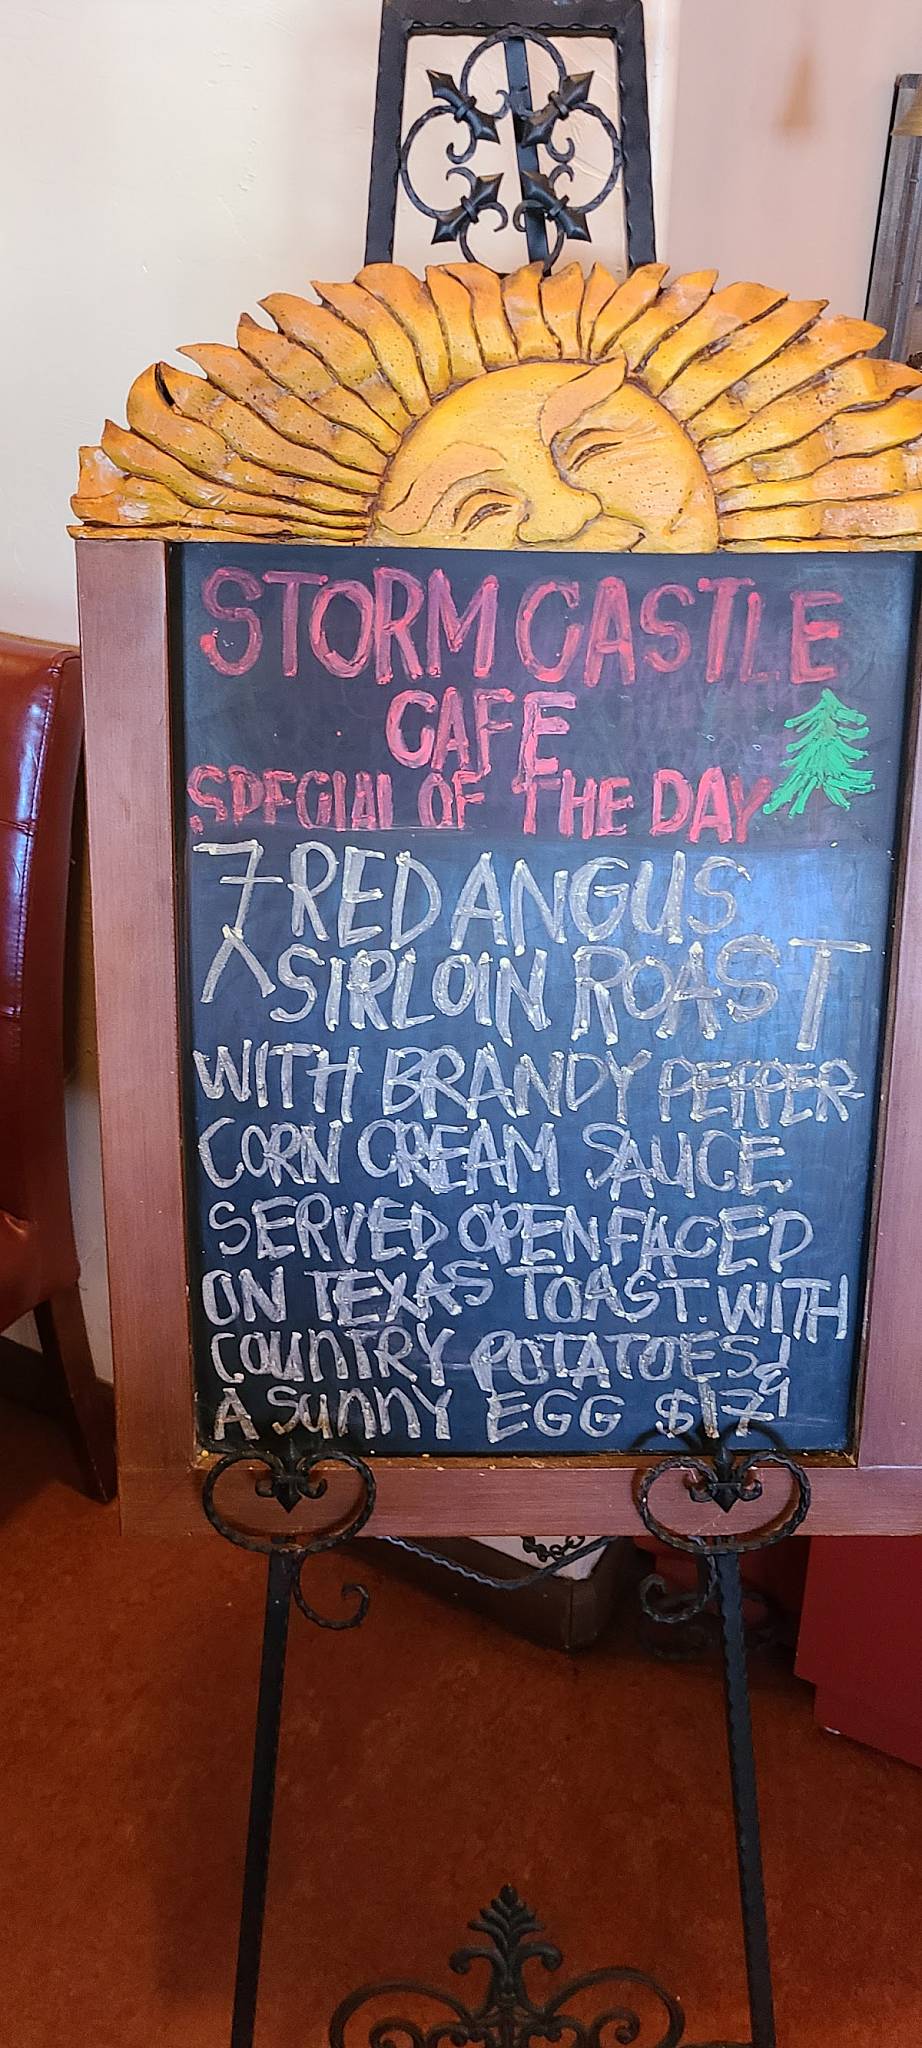 STORM CASTLE
CAFE
SPECIAL OF THE DAY
7 RED ANGUS
Λ SIRLOIN ROAST
WITH BRANDY PEPPER
CORN CREAM SAUCE
SERVED OPEN FACED
ON TEXAS TOAST. WITH
COUNTRY POTATOES &
A SUNNY EGG $17